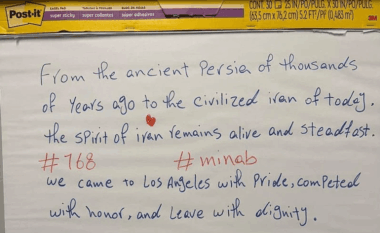 Post-it
super sticky super collantes super adhesivas
CONT. 30 25 IN/PO/PULG. X 30 IN/PO/PULG.
(63,5 cm x 76,2 cm) 5.2 FT²/PI² (0,483 m²)
3M
From the ancient Persia of thousands
of years ago to the civilized iran of today.
the spirit of iran remains alive and steadfast.
#768 #minab
we came to Los Angeles with Pride, competed
with honor, and Leave with dignity.